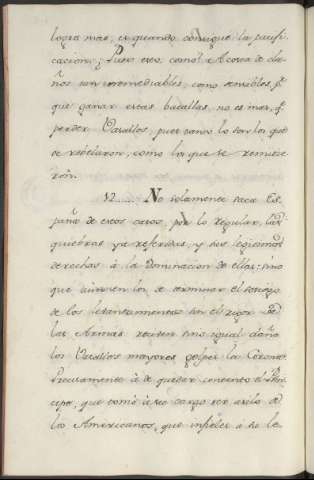 logra mas, es quando consigue la pacifi-
cacion; Pues estos como â Acosa de da-
ños son irremediables, como sensibles, pr
que ganar estas batallas, no es mas, q.e
perder Vasallos, pues tanto lo son los que
se rebelaron, como los que se remitie-
rón.
12...... No solamente saca Es-
paña de estos casos, por lo regular, las
quiebras ya referidas, y sus legitimos
derechos â la Dominacion de ellas; sino
que aun en los de terminar el
de los levantamientos sin el rigor de
las Armas resiten sino igual daño
los Vasallos mayores golpes la Corona.
Precisamente â de quedar contento el Prin-
cipe, que tomó â su cargo ser asilo de
los Americanos, que infieles â su le-